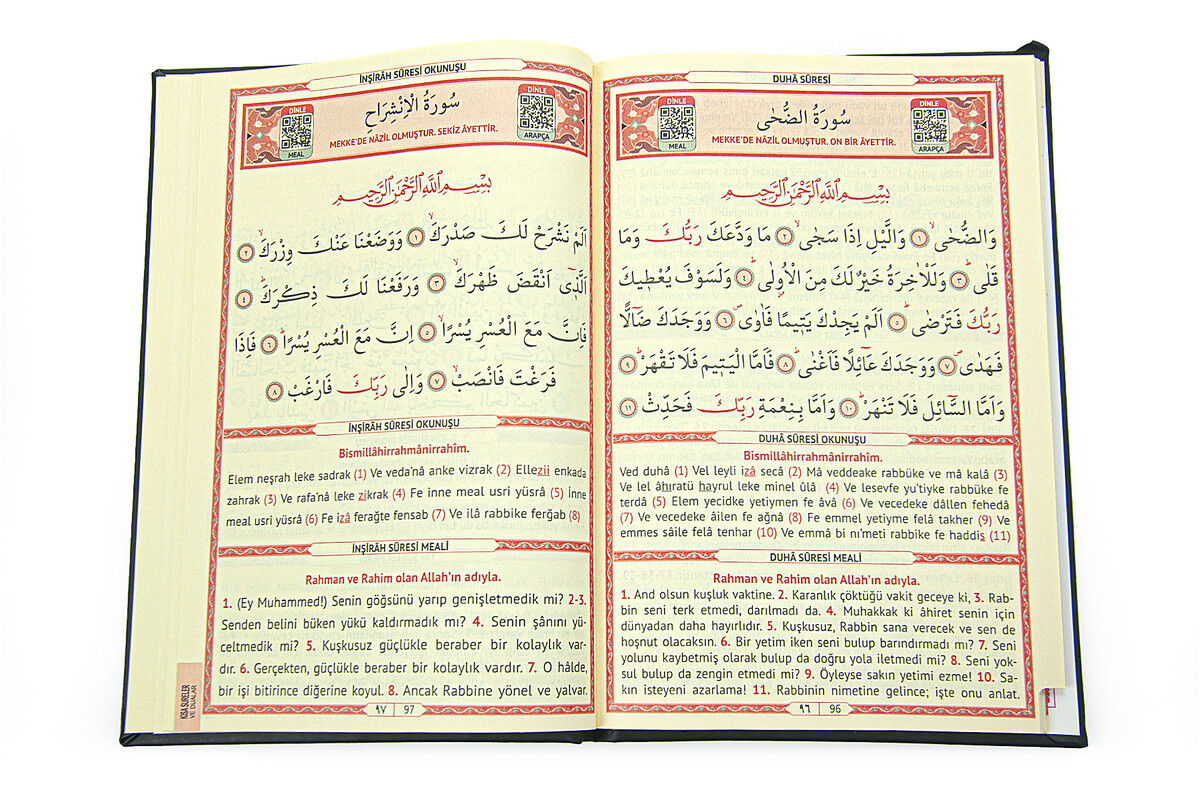 DUHÂ SÛRESİ
DİNLE
MEAL
سُورَةُ الضُّحٰى
MEKKE'DE NÂZİL OLMUŞTUR. ON BİR ÂYETTİR.
DİNLE
ARAPÇA
بِسْمِ اللّٰهِ الرَّحْمٰنِ الرَّحِيمِ
وَالضُّحٰىۙ ﴿١﴾ وَالَّيْلِ اِذَا سَجٰىۙ ﴿٢﴾ مَا وَدَّعَكَ رَبُّكَ وَمَا
قَلٰىۜ ﴿٣﴾ وَلَلْاٰخِرَةُ خَيْرٌ لَكَ مِنَ الْاُو۫لٰىۜ ﴿٤﴾ وَلَسَوْفَ يُعْط۪يكَ
رَبُّكَ فَتَرْضٰىۜ ﴿٥﴾ اَلَمْ يَجِدْكَ يَت۪يمًا فَاٰوٰىۖ ﴿٦﴾ وَوَجَدَكَ ضَٓالًّا
فَهَدٰىۖ ﴿٧﴾ وَوَجَدَكَ عَٓائِلًا فَاَغْنٰىۜ ﴿٨﴾ فَاَمَّا الْيَت۪يمَ فَلَا تَقْهَرْۜ ﴿٩﴾
وَاَمَّا السَّٓائِلَ فَلَا تَنْهَرْۜ ﴿١٠﴾ وَاَمَّا بِنِعْمَةِ رَبِّكَ فَحَدِّثْ ﴿١١﴾
DUHÂ SÛRESİ OKUNUŞU
Bismillâhirrahmânirrahîm.
Ved duhâ (1) Vel leyli izâ secâ (2) Mâ veddeake rabbüke ve mâ kalâ (3)
Ve lel âhıratü hayrul leke minel ûlâ (4) Ve lesevfe yu'tiyke rabbüke fe
terdâ (5) Elem yecidke yetiymen fe âvâ (6) Ve vecedeke dâllen fehedâ
(7) Ve vecedeke âilen fe ağnâ (8) Fe emmel yetiyme felâ takher (9) Ve
emmes sâile felâ tenhar (10) Ve emmâ bi nı'meti rabbike fe haddis (11)
DUHÂ SÛRESİ MEALİ
Rahman ve Rahim olan Allah'ın adıyla.
1. And olsun kuşluk vaktine. 2. Karanlık çöktüğü vakit geceye ki, 3. Rab-
bin seni terk etmedi, darılmadı da. 4. Muhakkak ki âhiret senin için
dünyadan daha hayırlıdır. 5. Kuşkusuz, Rabbin sana verecek ve sen de
hoşnut olacaksın. 6. Bir yetim iken seni bulup barındırmadı mı? 7. Seni
yolunu kaybetmiş olarak bulup da doğru yola iletmedi mi? 8. Seni yok-
sul bulup da zengin etmedi mi? 9. Öyleyse sakın yetimi ezme! 10. Sa-
kın isteyeni azarlama! 11. Rabbinin nimetine gelince; işte onu anlat.
٩٦ 96
İNŞİRÂH SÛRESİ OKUNUŞU
DİNLE
MEAL
سُورَةُ الْاِنْشِرَاحِ
MEKKE'DE NÂZİL OLMUŞTUR. SEKİZ ÂYETTİR.
DİNLE
ARAPÇA
بِسْمِ اللّٰهِ الرَّحْمٰنِ الرَّحِيمِ
اَلَمْ نَشْرَحْ لَكَ صَدْرَكَۙ ﴿١﴾ وَوَضَعْنَا عَنْكَ وِزْرَكَۙ ﴿٢﴾
اَلَّذ۪ٓي اَنْقَضَ ظَهْرَكَۙ ﴿٣﴾ وَرَفَعْنَا لَكَ ذِكْرَكَۜ ﴿٤﴾
فَاِنَّ مَعَ الْعُسْرِ يُسْرًاۙ ﴿٥﴾ اِنَّ مَعَ الْعُسْرِ يُسْرًاۜ ﴿٦﴾ فَاِذَا
فَرَغْتَ فَانْصَبْۙ ﴿٧﴾ وَاِلٰى رَبِّكَ فَارْغَبْ ﴿٨﴾
İNŞİRÂH SÛRESİ OKUNUŞU
Bismillâhirrahmânirrahîm.
Elem neşrah leke sadrak (1) Ve veda'nâ anke vizrak (2) Ellezii enkada
zahrak (3) Ve rafa'nâ leke zikrak (4) Fe inne meal usri yüsrâ (5) İnne
meal usri yüsrâ (6) Fe izâ ferağte fensab (7) Ve ilâ rabbike ferğab (8)
İNŞİRÂH SÛRESİ MEALİ
Rahman ve Rahim olan Allah'ın adıyla.
1. (Ey Muhammed!) Senin göğsünü yarıp genişletmedik mi? 2-3.
Senden belini büken yükü kaldırmadık mı? 4. Senin şânını yü-
celtmedik mi? 5. Kuşkusuz güçlükle beraber bir kolaylık var-
dır. 6. Gerçekten, güçlükle beraber bir kolaylık vardır. 7. O hâlde,
bir işi bitirince diğerine koyul. 8. Ancak Rabbine yönel ve yalvar.
٩٧ 97
KISA SURELER
VE DUALAR